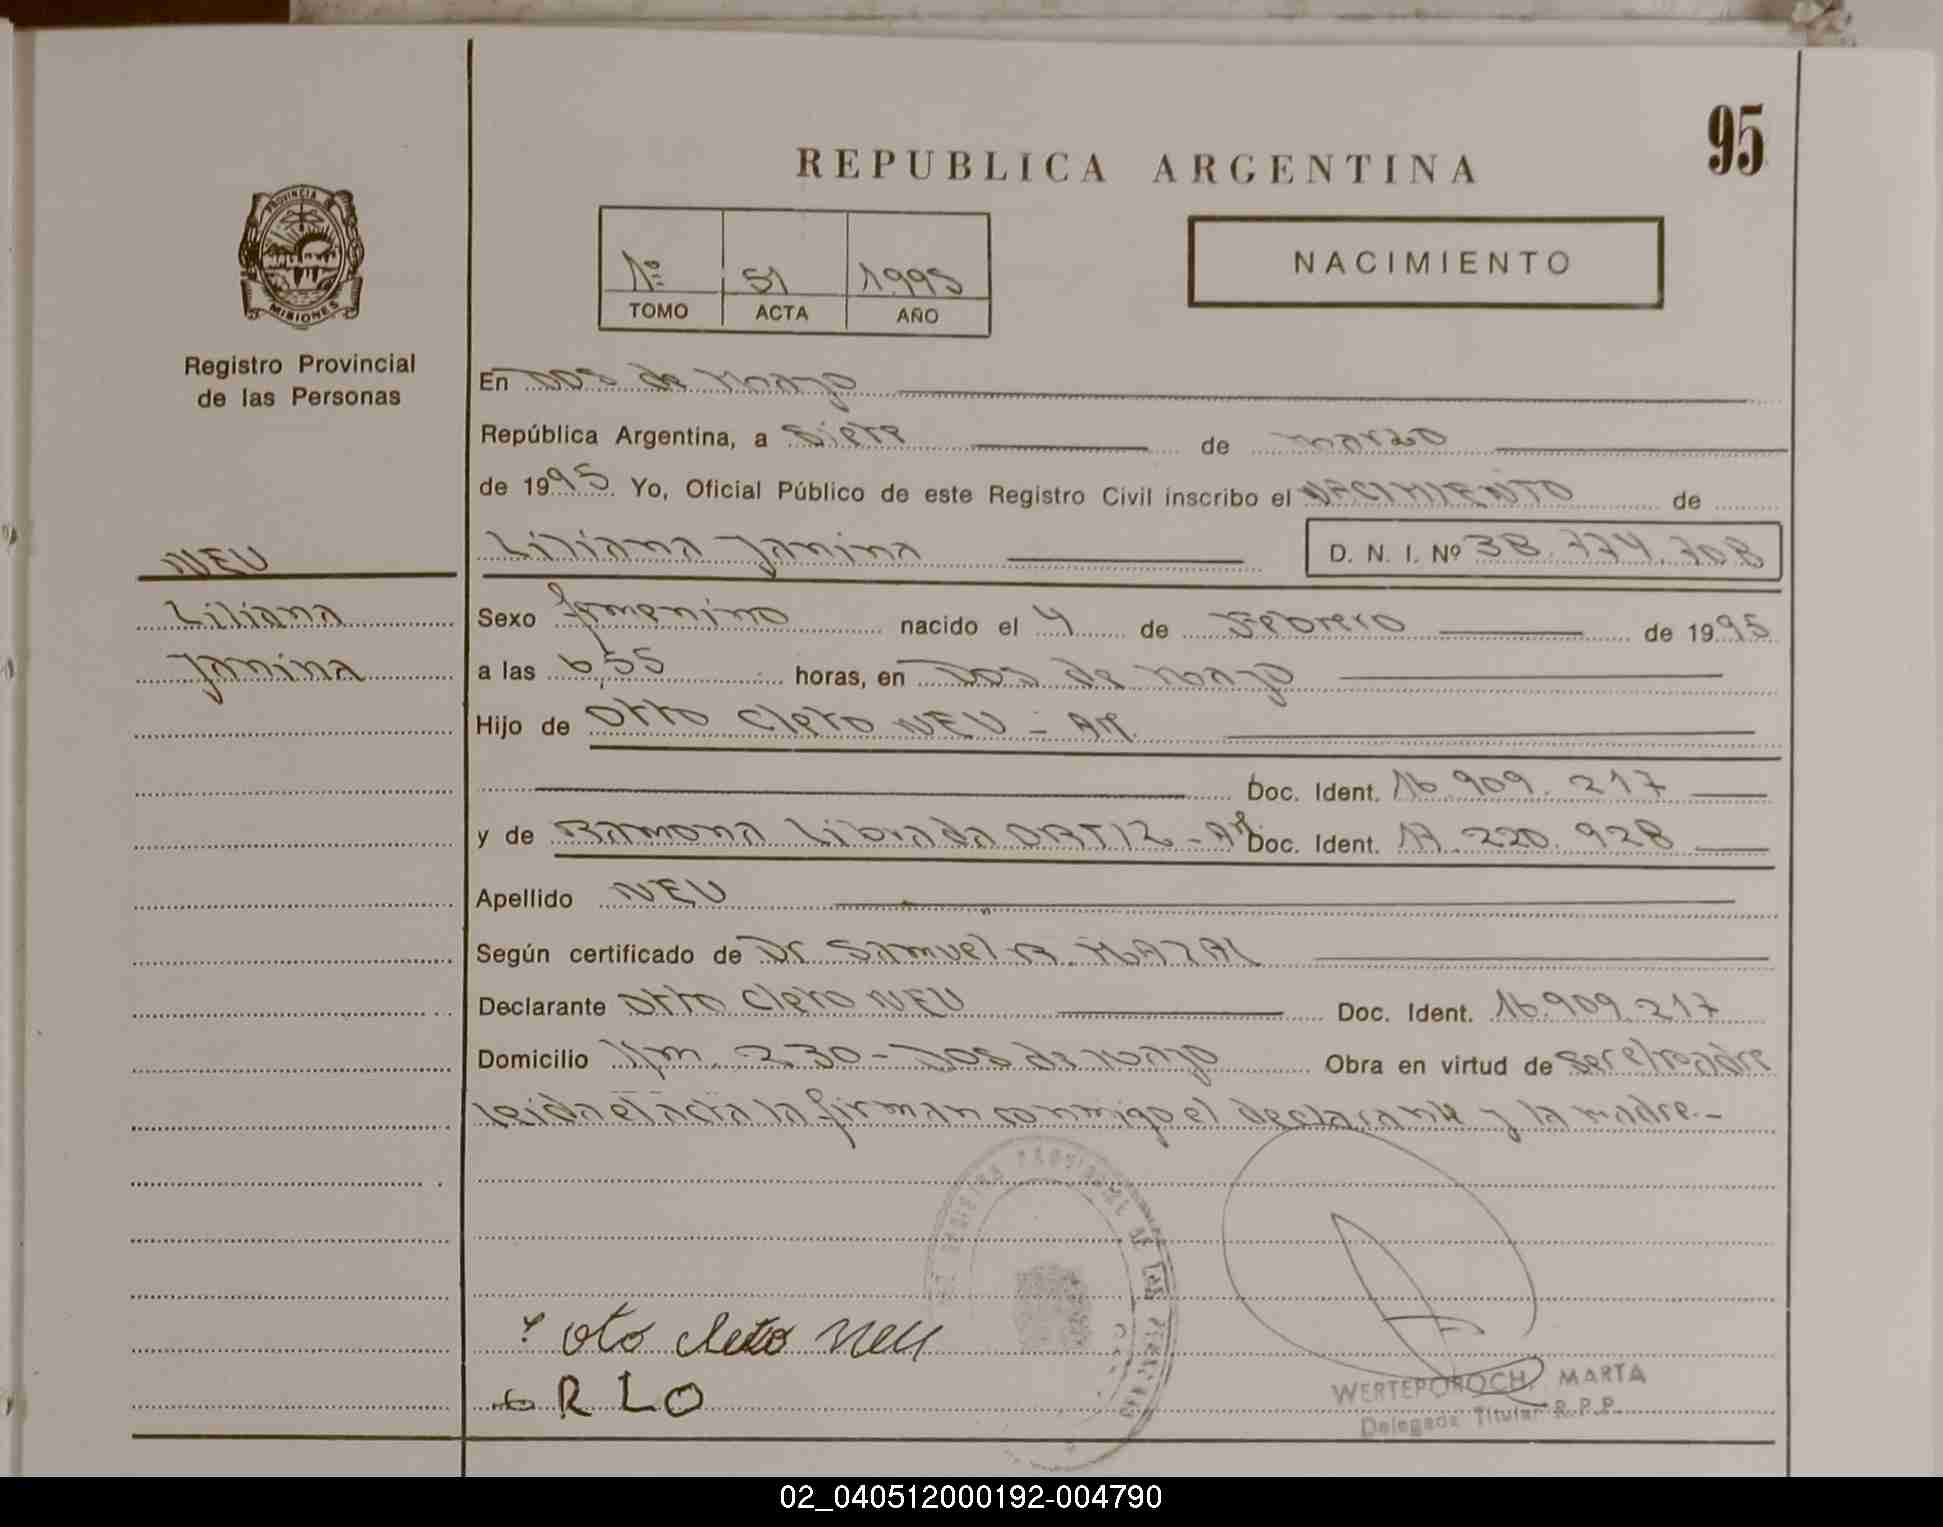 95
REPUBLICA ARGENTINA
PROVINCIA DE
MISIONES
Registro Provincial
de las Personas
1º 51 1995
TOMO ACTA AÑO
NACIMIENTO
En Dos de Mayo
República Argentina, a Siete de marzo
de 1995 Yo, Oficial Público de este Registro Civil inscribo el NACIMIENTO de
NEU
Liliana Janina D. N. I. Nº 38.774.708
Liliana
Sexo femenino nacido el 4 de Febrero de 1995
Janina
a las 6,55 horas, en Dos de Mayo
Hijo de Otto Cleto NEU - Ar.
Doc. Ident. 16.909.217
y de Ramona Librada ORTIZ - Ar. Doc. Ident. 17.220.928
Apellido NEU
Según certificado de Dr Samuel B. MAZAL
Declarante Otto Cleto NEU Doc. Ident. 16.909.217
Domicilio Km. 230 - Dos de Mayo Obra en virtud de ser el padre
leida el acta la firman conmigo el declarante y la madre.-
REGISTRO PROVINCIAL DE LAS PERSONAS
oto cleto neu
R L O
WERTEPOROCH, MARTA
Delegada Titular R.P.P.
02_040512000192-004790